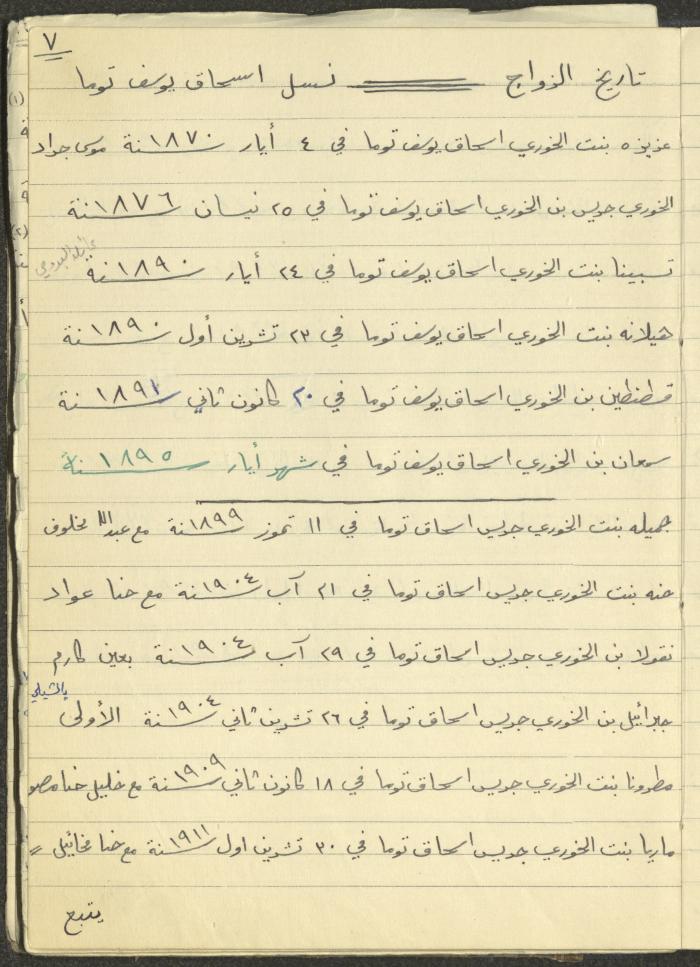 ٧
تاريخ الزواج نسل اسحاق يوسف توما
عزيزه بنت الخوري اسحاق يوسف توما في ٤ أيار سنة ١٨٧٠ موسى جراد
الخوري جريس بن الخوري اسحاق يوسف توما في ٢٥ نيسان سنة ١٨٧٦
تسبينا بنت الخوري اسحاق يوسف توما في ٢٤ أيار سنة ١٨٩٠
هيلانه بنت الخوري اسحاق يوسف توما في ٢٣ تشرين أول سنة ١٨٩٠
قسطنطين بن الخوري اسحاق يوسف توما في ٢٠ كانون ثاني سنة ١٨٩٢
سمعان بن الخوري اسحاق يوسف توما في شهر أيار سنة ١٨٩٥
جميله بنت الخوري جريس اسحاق توما في ١١ تموز سنة ١٨٩٩ مع عبدالله مخلوف
حنه بنت الخوري جريس اسحاق توما في ٢١ آب سنة ١٩٠٤ مع حنا عواد
نقولا بن الخوري جريس اسحاق توما في ٢٩ آب سنة ١٩٠٤ بعين كارم
جبرائيل بن الخوري جريس اسحاق توما في ٢٦ تشرين ثاني سنة ١٩٠٤ الأولى بالتشيلي
مطرونا بنت الخوري جريس اسحاق توما في ١٨ كانون ثاني سنة ١٩٠٩ مع خليل حنا
ماريا بنت الخوري جريس اسحاق توما في ٣٠ تشرين اول سنة ١٩١١ مع حنا مخائيل =
يتبع